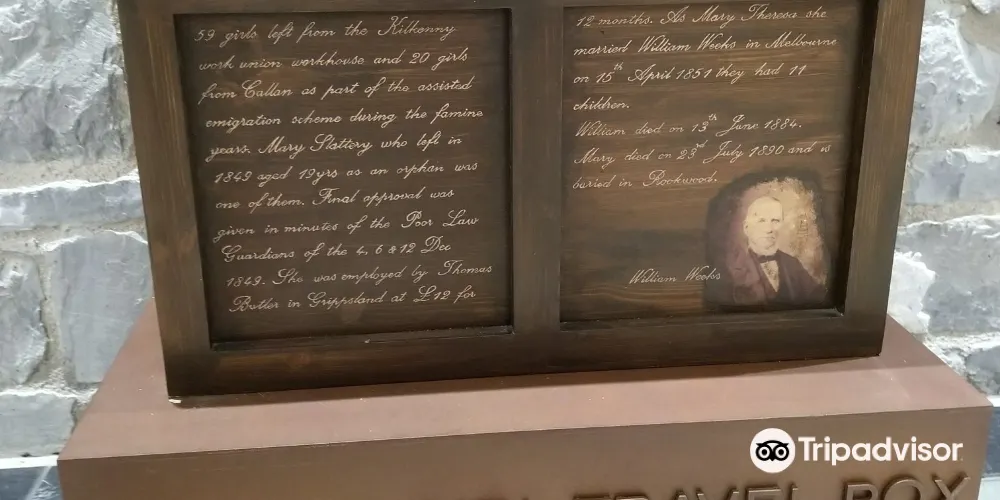 59 girls left from the Kilkenny
work union workhouse and 20 girls
from Callan as part of the assisted
emigration scheme during the famine
years. Mary Slattery who left in
1849 aged 19yrs as an orphan was
one of them. Final approval was
given in minutes of the Poor Law
Guardians of the 4, 6 & 12 Dec
1849. She was employed by Thomas
Butler in Grippsland at £12 for
12 months. As Mary Theresa she
married William Weeks in Melbourne
on 15th April 1851 they had 11
children.
William died on 13th June 1884.
Mary died on 23rd July 1890 and is
buried in Rookwood.
William Weeks
TRAVEL BOX
Tripadvisor